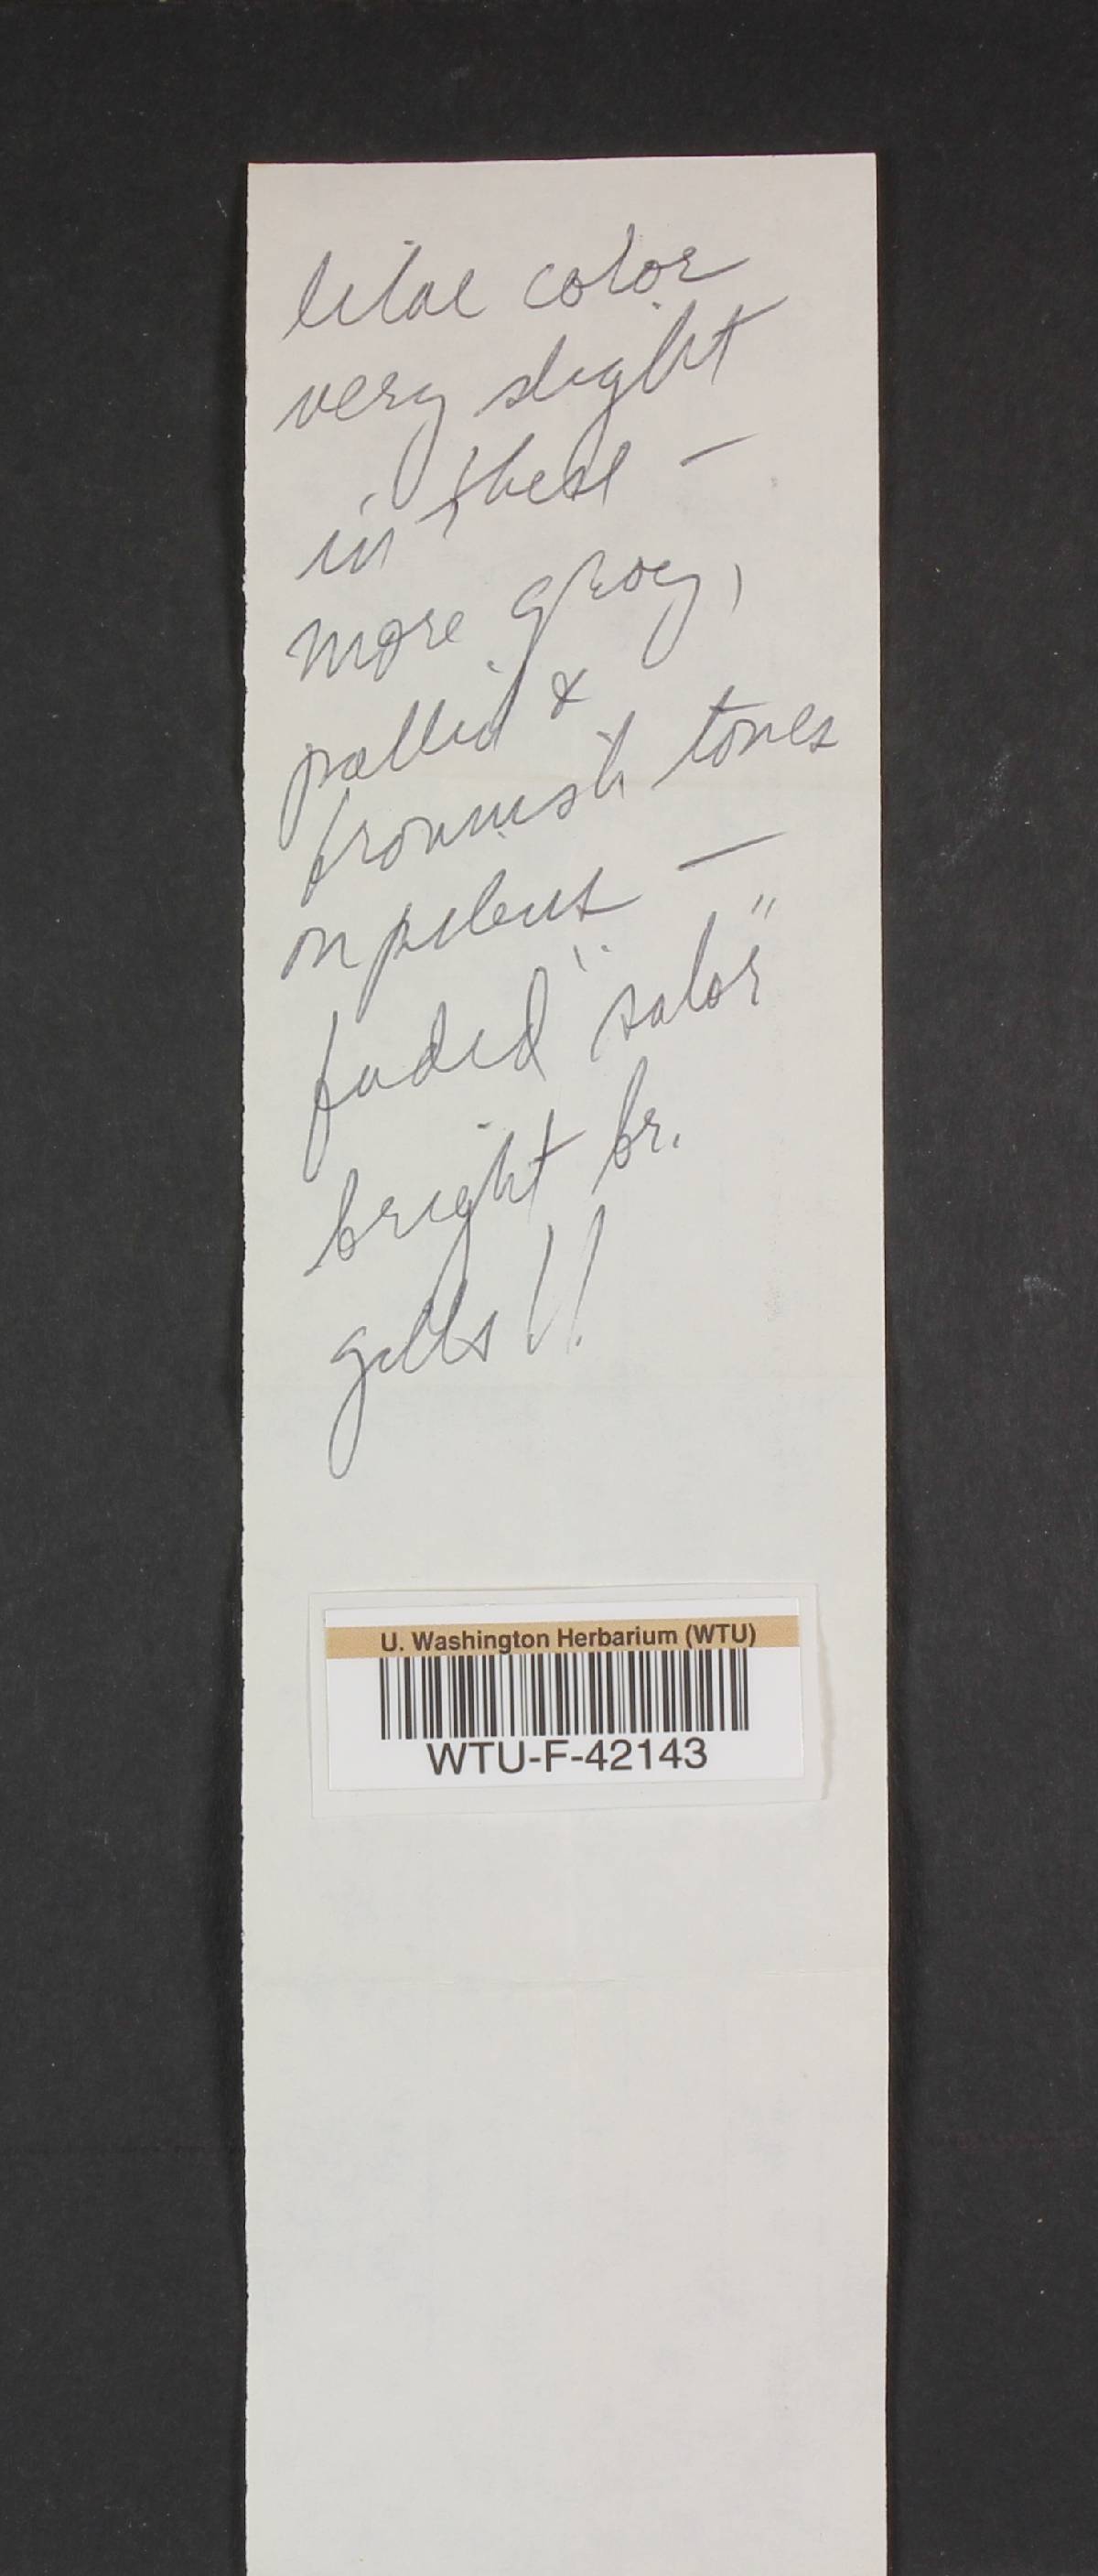 lilac color
very slight
in these —
more gray,
pallid &
brownish tones
on pileus —
faded "salor"
bright br.
gills!!
U. Washington Herbarium (WTU)
WTU-F-42143